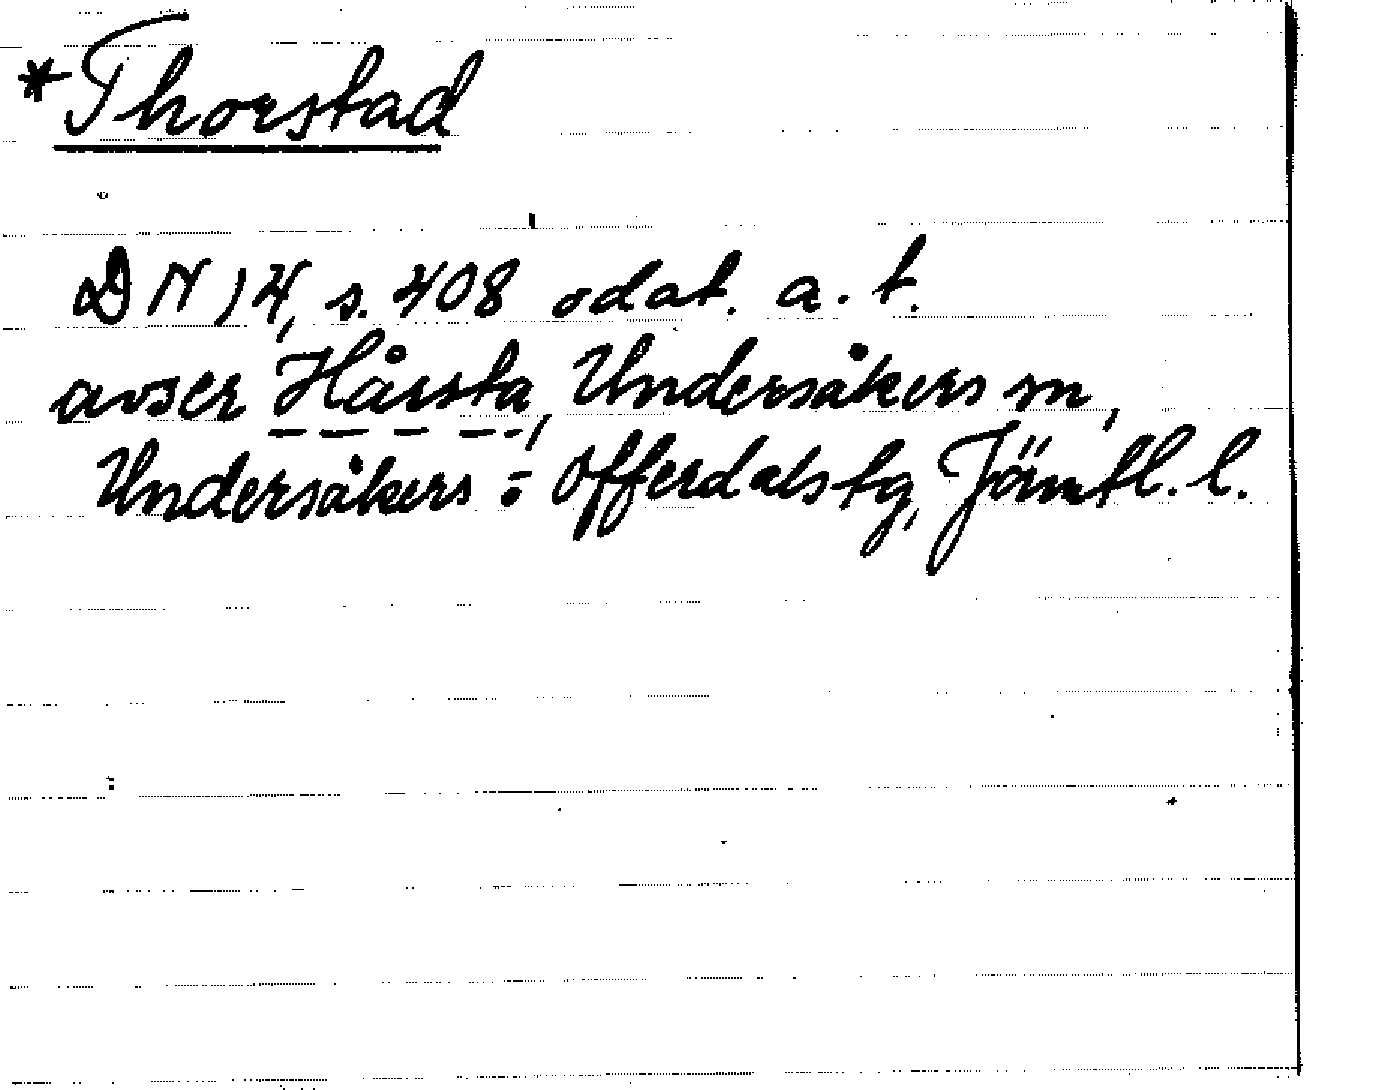 *Thorstad
DN 14, s. 408 odat. a. t.
avser Hårsta, Undersåkers sn,
Undersåkers o. Offerdals tg, Jämtl. l.